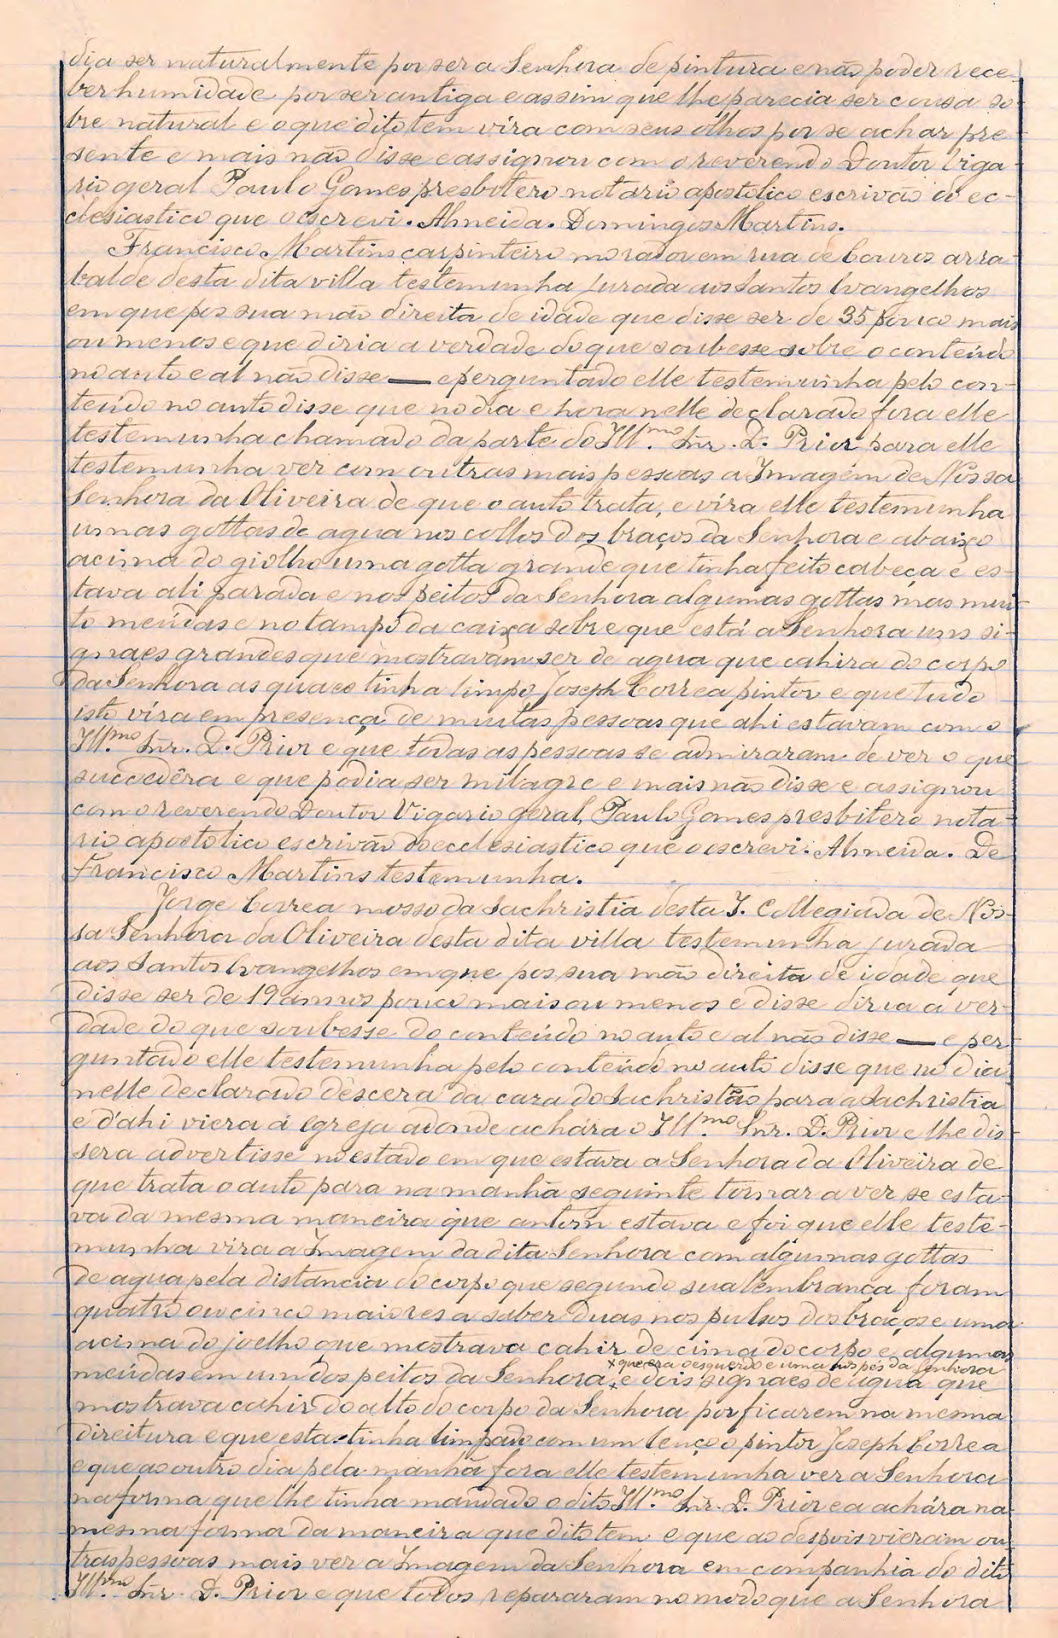 dia ser naturalmente por ser a Senhora de pintura e não poder rece-
ber humidade por ser antiga e assim que lhe parecia ser cousa so-
bre natural e o que dito tem víra com seus olhos por se achar pre-
sente e mais não disse e assignou com o reverendo Doutor Viga-
rio geral Paulo Gomes presbitero notario apostolico escrivão do ec-
clesiastico que o escrevi. Almeida. Domingos Martins.
Francisco Martins carpinteiro morador em rua de Couros arra-
balde desta dita villa testemunha jurada aos Santos Evangelhos
em que pos sua mão direita de idade que disse ser de 35 pouco mais
ou menos e que diria a verdade do que soubesse sobre o conteúdo
no auto e al não disse — e perguntado elle testemunha pelo con-
teúdo no auto disse que no dia e hora nelle declarado fora elle
testemunha chamado da parte do Ill.mo Snr. D. Prior para elle
testemunha ver com outras mais pessoas a Imagem de Nossa
Senhora da Oliveira de que o auto trata, e víra elle testemunha
umas gottas de agua nos collos dos braços da Senhora e abaixo
acima do giolho uma gotta grande que tinha feito cabeça e es-
tava ali parada e nos peitos da Senhora algumas gottas mas mui-
to meúdas e no tampo da caixa sobre que está a Senhora uns si-
gnaes grandes que mostravam ser de agua que cahira do corpo
da Senhora as quaes tinha limpo Joseph Correa pintor e que tudo
isto víra em presença de muitas pessoas que ahi estavam com o
Ill.mo Snr. D. Prior e que todas as pessoas se admiraram de ver o que
succedêra e que podia ser milagre e mais não disse e assignou
com o reverendo Doutor Vigario geral, Paulo Gomes presbitero nota-
rio apostolico escrivão do ecclesiastico que o escrevi. Almeida. De
Francisco Martins testemunha.
Jorge Correa mosso da Sachristia desta I. Collegiada de Nos-
sa Senhora da Oliveira desta dita villa testemunha jurada
aos Santos Evangelhos em que pos sua mão direita de idade que
disse ser de 19 annos pouco mais ou menos e disse diria a ver-
dade do que soubesse do conteúdo no auto e al não disse — e per-
guntado elle testemunha pelo conteúdo no auto disse que no dia
nelle declarado descera da casa do Sachristão para a Sachristia
e d'ahi viera á Igreja adonde achára o Ill.mo Snr. D. Prior e lhe dis-
sera advertisse no estado em que estava a Senhora da Oliveira de
que trata o auto para na manhã seguinte tornar a ver se esta-
va da mesma maneira que antem estava e foi que elle teste-
munha vira a Imagem da dita Senhora com algumas gottas
de agua pela distancia do corpo que segundo sua lembrança foram
quatro ou cinco maiores a saber duas nos pulsos dos braços e uma
acima do joelho que mostrava cahir de cima do corpo e algumas
x que era o esquerdo e uma nos pés da Senhora
meúdas em um dos peitos da Senhora x e dois signaes de agua que
mostrava cahir do alto do corpo da Senhora por ficarem na mesma
direitura e que esta tinha limpado com um lenço o pintor Joseph Correa
e que ao outro dia pela manhã fora elle testemunha ver a Senhora
na forma que lhe tinha mandado o dito Ill.mo Snr. D. Prior e a achára na
mesma forma da maneira que dito tem e que ao despois vieram ou-
tras pessoas mais ver a Imagem da Senhora em companhia do dito
Ill.mo Snr. D. Prior e que todos repararam no modo que a Senhora